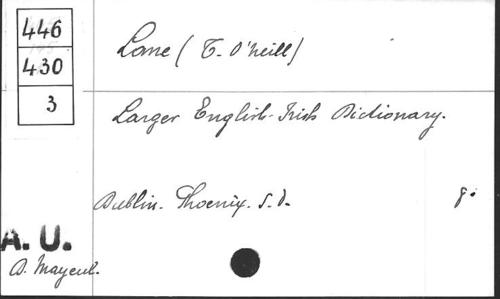 446
430
3
Lane (T. O'Neill)
Larger English-Irish Dictionary.
Dublin. Phoenix. s.d.
8.
A. U.
D. Mayeul.